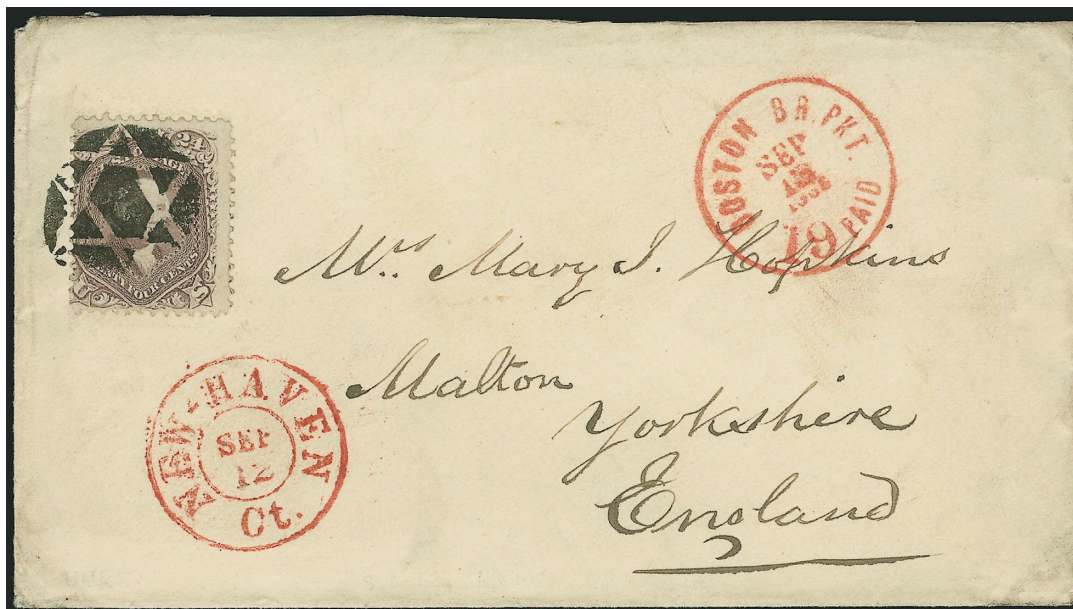 24 24
TWENTY FOUR CENTS
U S
BOSTON BR. PKT. PAID
SEP
19
Mrs. Mary J. Hopkins
Malton
Yorkshire
England
NEW-HAVEN Ct.
SEP
12